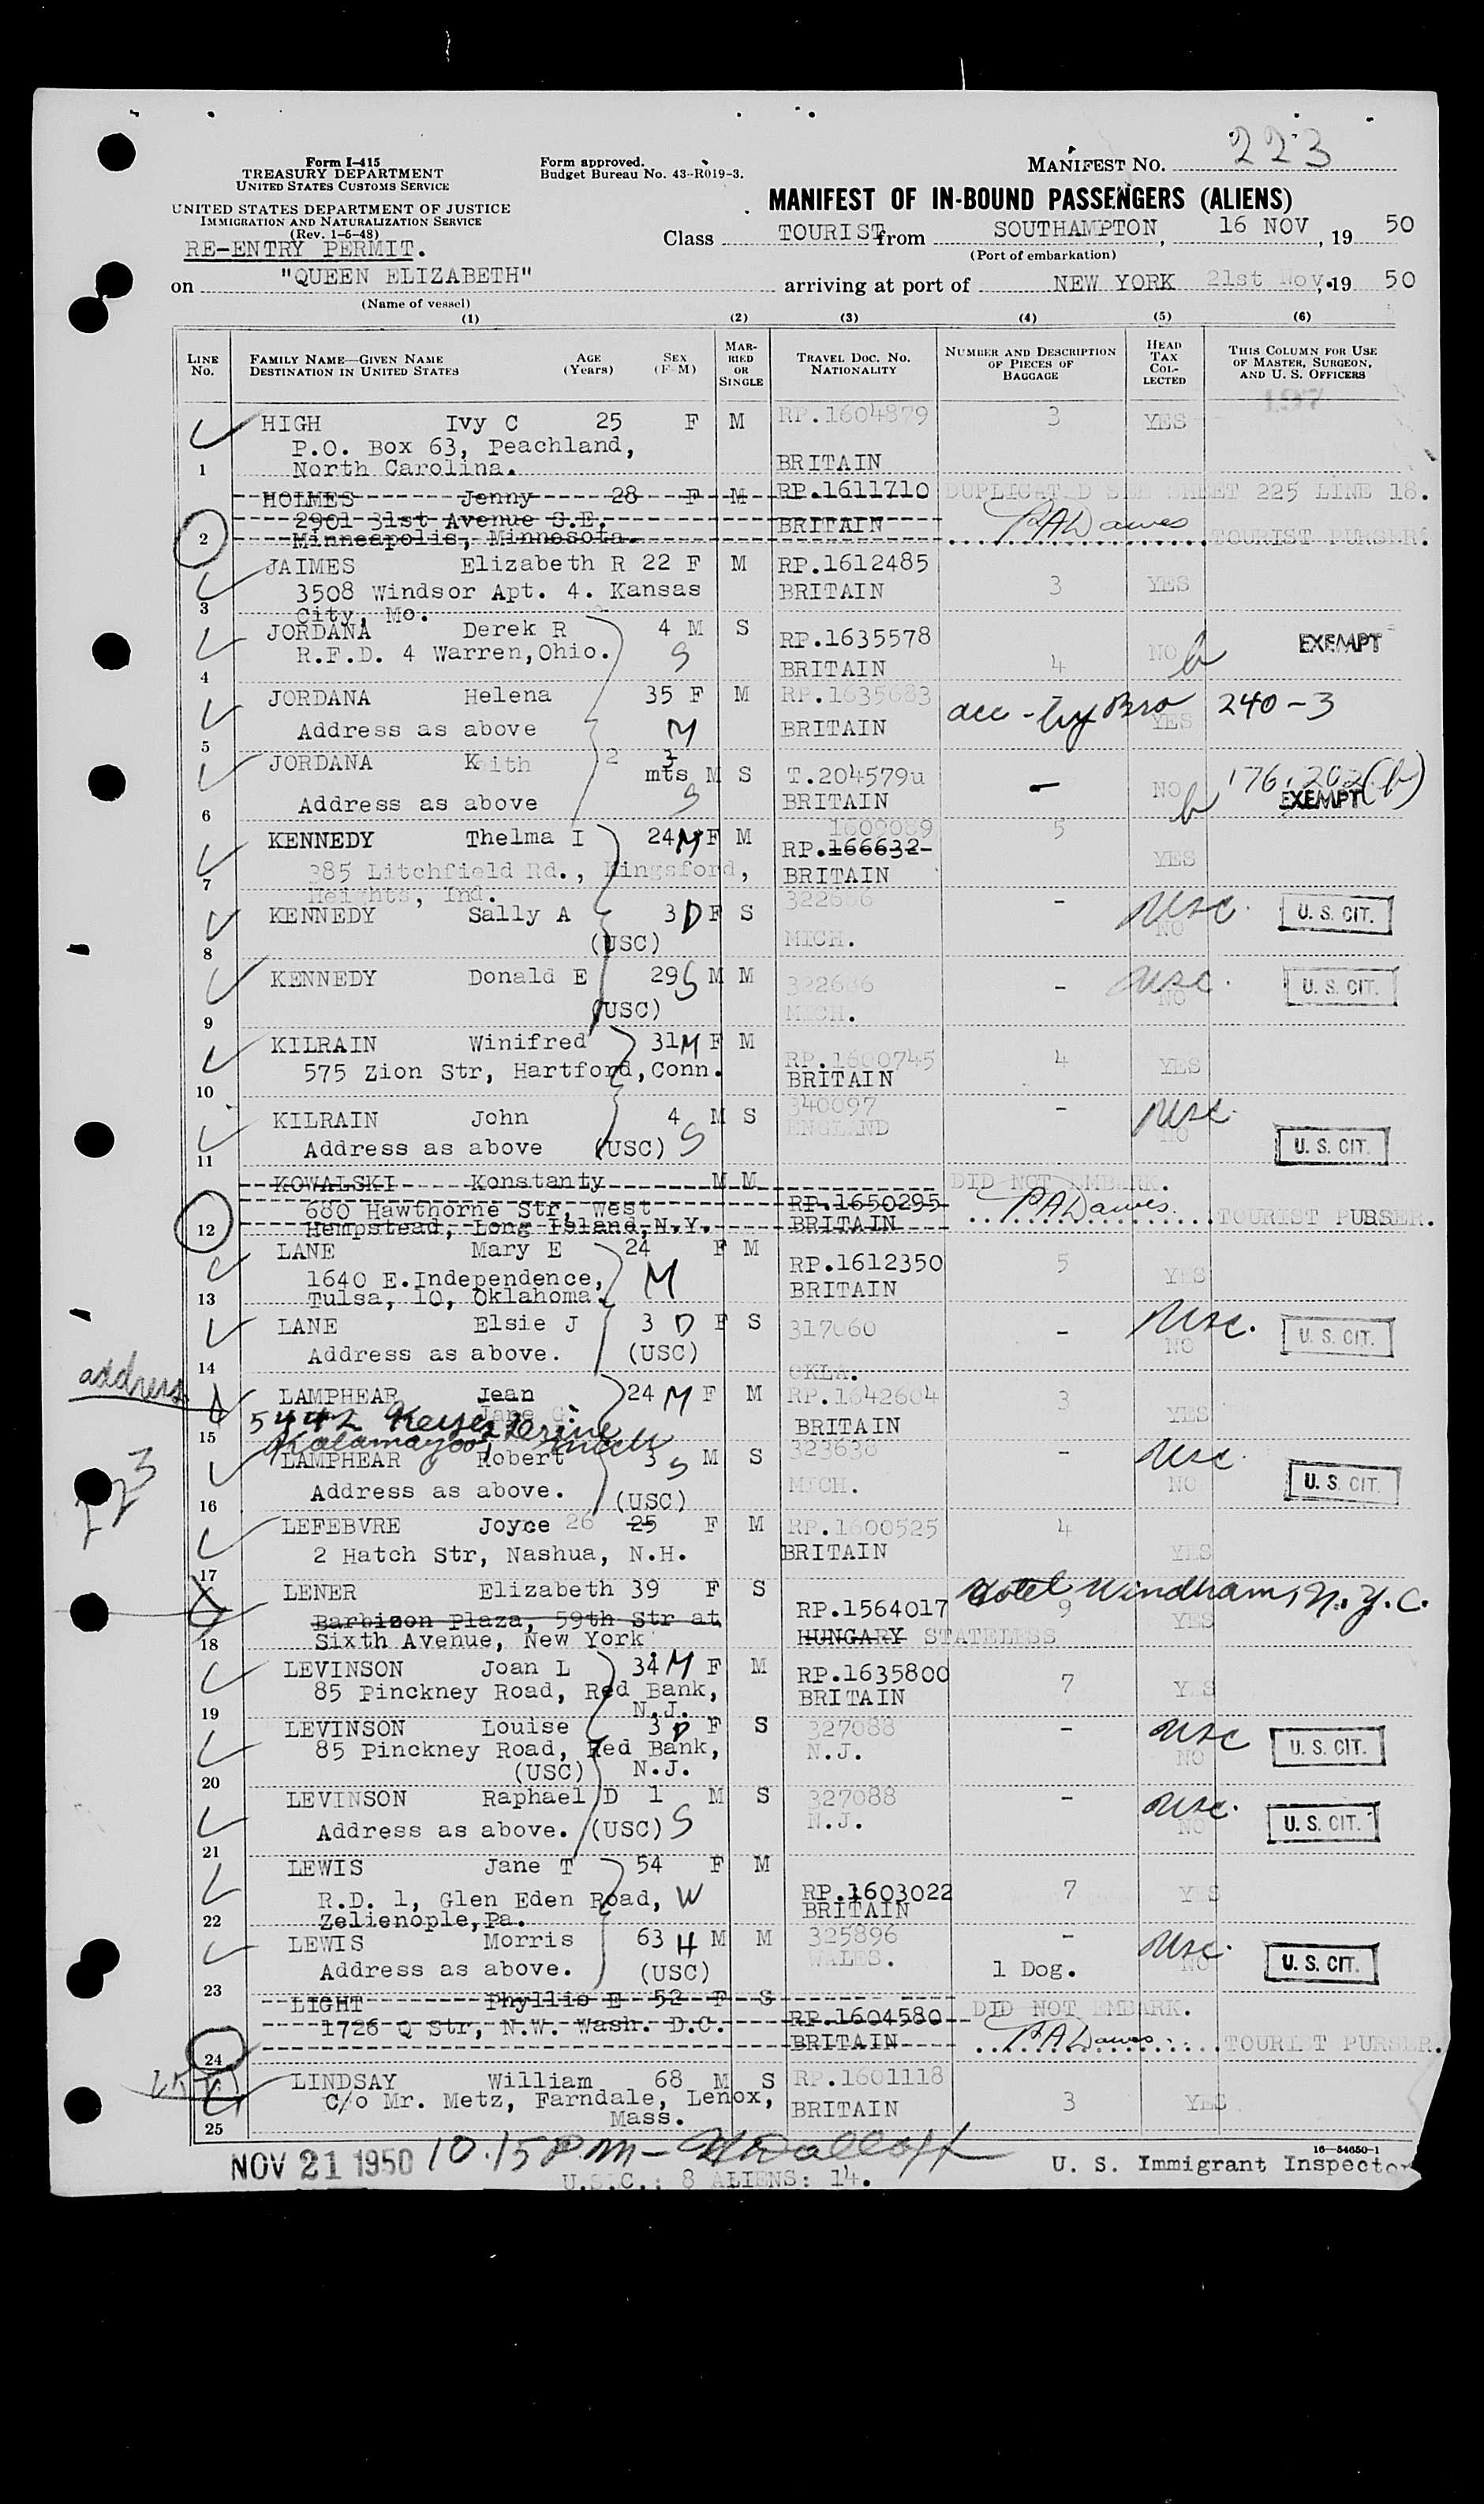 Form I-415
TREASURY DEPARTMENT
UNITED STATES CUSTOMS SERVICE
UNITED STATES DEPARTMENT OF JUSTICE
IMMIGRATION AND NATURALIZATION SERVICE
(Rev. 1-5-48)
RE-ENTRY PERMIT.
Form approved.
Budget Bureau No. 43-R019-3.
MANIFEST NO. 223
MANIFEST OF IN-BOUND PASSENGERS (ALIENS)
Class TOURIST from SOUTHAMPTON, 16 NOV, 19 50
(Port of embarkation)
on "QUEEN ELIZABETH" arriving at port of NEW YORK 21st Nov, 19 50
(Name of vessel)
(1) (2) (3) (4) (5) (6)
LINE No. FAMILY NAME—GIVEN NAME DESTINATION IN UNITED STATES AGE (Years) SEX (F-M) MARRIED OR SINGLE TRAVEL DOC. NO. NATIONALITY NUMBER AND DESCRIPTION OF PIECES OF BAGGAGE HEAD TAX COLLECTED THIS COLUMN FOR USE OF MASTER, SURGEON, AND U. S. OFFICERS
197
HIGH Ivy C 25 F M RP.1604879 3 YES
P.O. Box 63, Peachland,
1 North Carolina. BRITAIN
HOLMES Jenny 28 F M RP.1611710 DUPLICATED SEE SHEET 225 LINE 18.
2901 31st Avenue S.E. BRITAIN PADawes
2 Minneapolis, Minnesota. TOURIST PURSER.
JAIMES Elizabeth R 22 F M RP.1612485
3508 Windsor Apt. 4. Kansas BRITAIN 3 YES
3 City, Mo.
JORDANA Derek R 4 M S RP.1635578 EXEMPT
R.F.D. 4 Warren,Ohio. S BRITAIN 4 NO
4
JORDANA Helena 35 F M RP.1635683 acc - by Bro 240-3
Address as above M BRITAIN YES
5
JORDANA Keith 2 3 mts M S T.204579u - NO 176.202(b)
Address as above S BRITAIN EXEMPT
6
KENNEDY Thelma I 24 M F M 1609089 5
RP.166632 YES
385 Litchfield Rd., Kingsford, BRITAIN
7 Heights, Ind.
KENNEDY Sally A 3 D F S 322686 - usc. NO U. S. CIT.
8 (USC) MICH.
KENNEDY Donald E 29 S M M 322686 - usc. NO U. S. CIT.
9 (USC) MICH.
KILRAIN Winifred 31 M F M RP.1600745 4 YES
575 Zion Str, Hartford,Conn. BRITAIN
10
KILRAIN John 4 M S 340097 - usc. NO
Address as above (USC) S ENGLAND U. S. CIT.
11
KOWALSKI Konstanty M M DID NOT EMBARK.
680 Hawthorne Str, West RP.1650295 PADawes.
12 Hempstead, Long Island,N.Y. BRITAIN TOURIST PURSER.
LANE Mary E 24 F M RP.1612350 5 YES
1640 E.Independence, M BRITAIN
13 Tulsa, 10, Oklahoma.
LANE Elsie J 3 D F S 317060 - usc. NO U. S. CIT.
Address as above. (USC)
14 OKLA.
address
LAMPHEAR Jean 24 M F M RP.1642604 3 YES
Jane G.
BRITAIN
15 Kalamazoo, Mich
LAMPHEAR Robert 3 S M S 323638 - usc. NO U. S. CIT.
223
Address as above. (USC) MICH.
16
LEFEBVRE Joyce 26 25 F M RP.1600525 4 YES
2 Hatch Str, Nashua, N.H. BRITAIN
17
LENER Elizabeth 39 F S RP.1564017 9 YES Hotel Windham, N.Y.C.
Barbizon Plaza, 59th Str at
18 Sixth Avenue, New York HUNGARY STATELESS
LEVINSON Joan L 34 M F M RP.1635800 7 YES
85 Pinckney Road, Red Bank, BRITAIN
19 N.J.
LEVINSON Louise 3 D F S 327088 - usc NO U. S. CIT.
85 Pinckney Road, Red Bank, N.J.
20 (USC) N.J.
LEVINSON Raphael D 1 M S 327088 - usc. NO U. S. CIT.
Address as above. (USC) S N.J.
21
LEWIS Jane T 54 F M
R.D. 1, Glen Eden Road, W RP.1603022 7 YES
22 Zelienople,Pa. BRITAIN
LEWIS Morris 63 H M M 325896 - usc. NO U. S. CIT.
Address as above. (USC) WALES. 1 Dog.
23
LIGHT Phyllis E 52 F S RP.1604580 DID NOT EMBARK.
1726 Q Str, N.W. Wash. D.C. BRITAIN PADawes. TOURIST PURSER.
24
LINDSAY William 68 M S RP.1601118
C/o Mr. Metz, Farndale, Lenox, BRITAIN 3 YES
25 Mass.
NOV 21 1950 10.15 PM -
16-54650-1
U. S. Immigrant Inspector
U.S.C.: 8 ALIENS: 14.